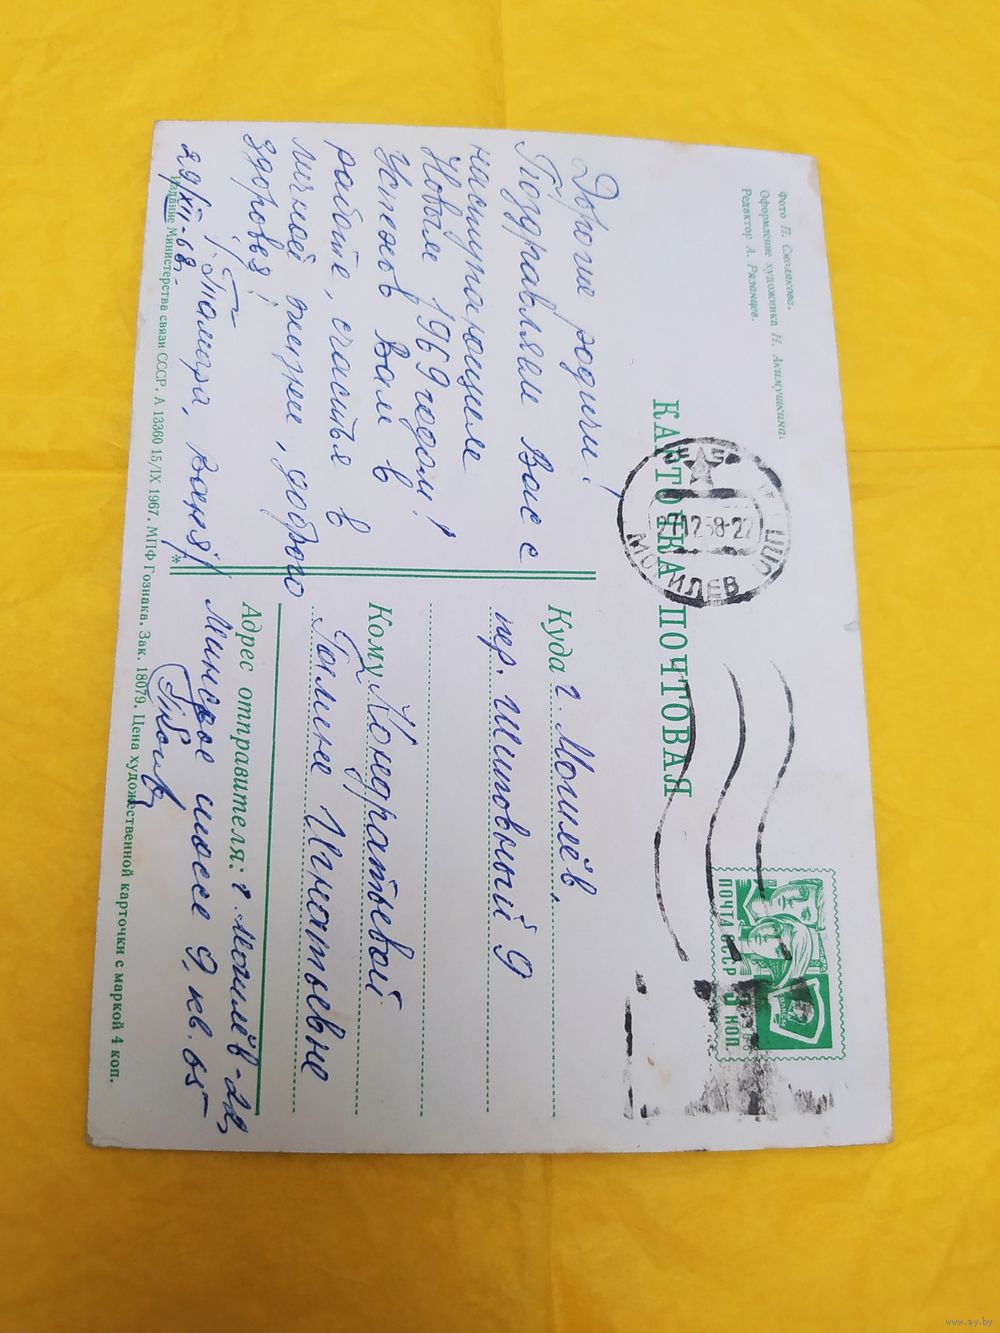 Фото П. Смолякова.
Оформление художника Н. Акимушкина.
Редактор А. Рязанцев.
КАРТОЧКА ПОЧТОВАЯ
27 12 68-22
МОГИЛЕВ
ПОЧТА СССР 3 КОП
Дорогие родичи!
Поздравляем Вас с
наступающим
Новым 1969 годом!
Успехов Вам в
работе, счастья в
личной жизни, доброго
здоровья!
Тамара, Ваня
29/XII-68.
Куда г. Могилёв,
пер. Шиповный 9
Кому Кондратьевой
Галине Игнатьевне
Адрес отправителя: г. Могилёв-28,
Минское шоссе 9, кв. 65
*
Издание Министерства связи СССР. А 13360 15/IX 1967. МПФ Гознака. Зак. 18079. Цена художественной карточки с маркой 4 коп.
www.ay.by